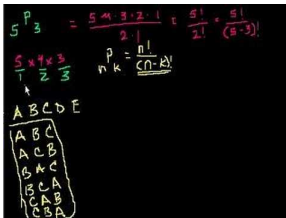 5P3 = 5·4·3·2·1 / 2·1 = 5! / 2! = 5! / (5-3)!
5 × 4 × 3
1 2 3
nPk = n! / (n-k)!
A B C D E
A B C
A C B
B A C
B C A
C A B
C B A